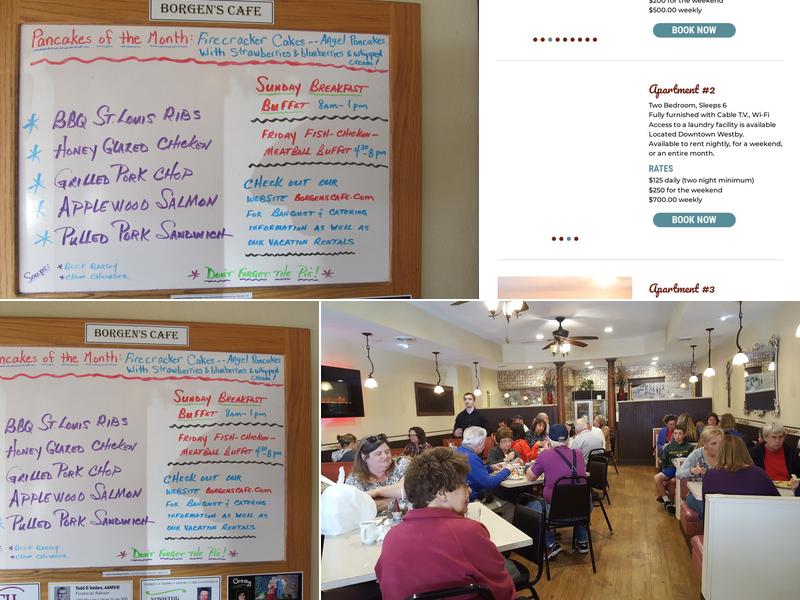 BORGEN'S CAFE
Pancakes of the Month: Firecracker Cakes -- Angel Pancakes
With Strawberries & blueberries & whipped
cream!
BBQ St Louis Ribs
Honey Glazed Chicken
Grilled Pork Chop
Applewood Salmon
Pulled Pork Sandwich
Soups:
* Beef Barley
* Clam Chowder
Sunday Breakfast
Buffet 8am-1pm
Friday Fish-Chicken-
Meatball Buffet 4:30-8pm
Check out our
website Borgenscafe.com
for Banquet & Catering
information as well as
our Vacation Rentals
* Don't Forget the Pie! *
$200 for the weekend
$500.00 weekly
BOOK NOW
Apartment #2
Two Bedroom, Sleeps 6
Fully furnished with Cable T.V., Wi-Fi
Access to a laundry facility is available
Located Downtown Westby.
Available to rent nightly, for a weekend,
or an entire month.
RATES
$125 daily (two night minimum)
$250 for the weekend
$700.00 weekly
BOOK NOW
Apartment #3
BORGEN'S CAFE
ncakes of the Month: Firecracker Cakes -- Angel Pancakes
With Strawberries & blueberries & whipped
cream!
BBQ St Louis Ribs
Honey Glazed Chicken
Grilled Pork Chop
Applewood Salmon
Pulled Pork Sandwich
* Beef Barley
* Clam Chowder
Sunday Breakfast
Buffet 8am-1pm
Friday Fish-Chicken-
Meatball Buffet 4:30-8pm
Check out our
website Borgenscafe.com
for Banquet & Catering
information as well as
our Vacation Rentals
* Don't Forget the Pie! *
Todd D Volden, AAMS®
Financial Advisor
VOSSETEIG
Century 21